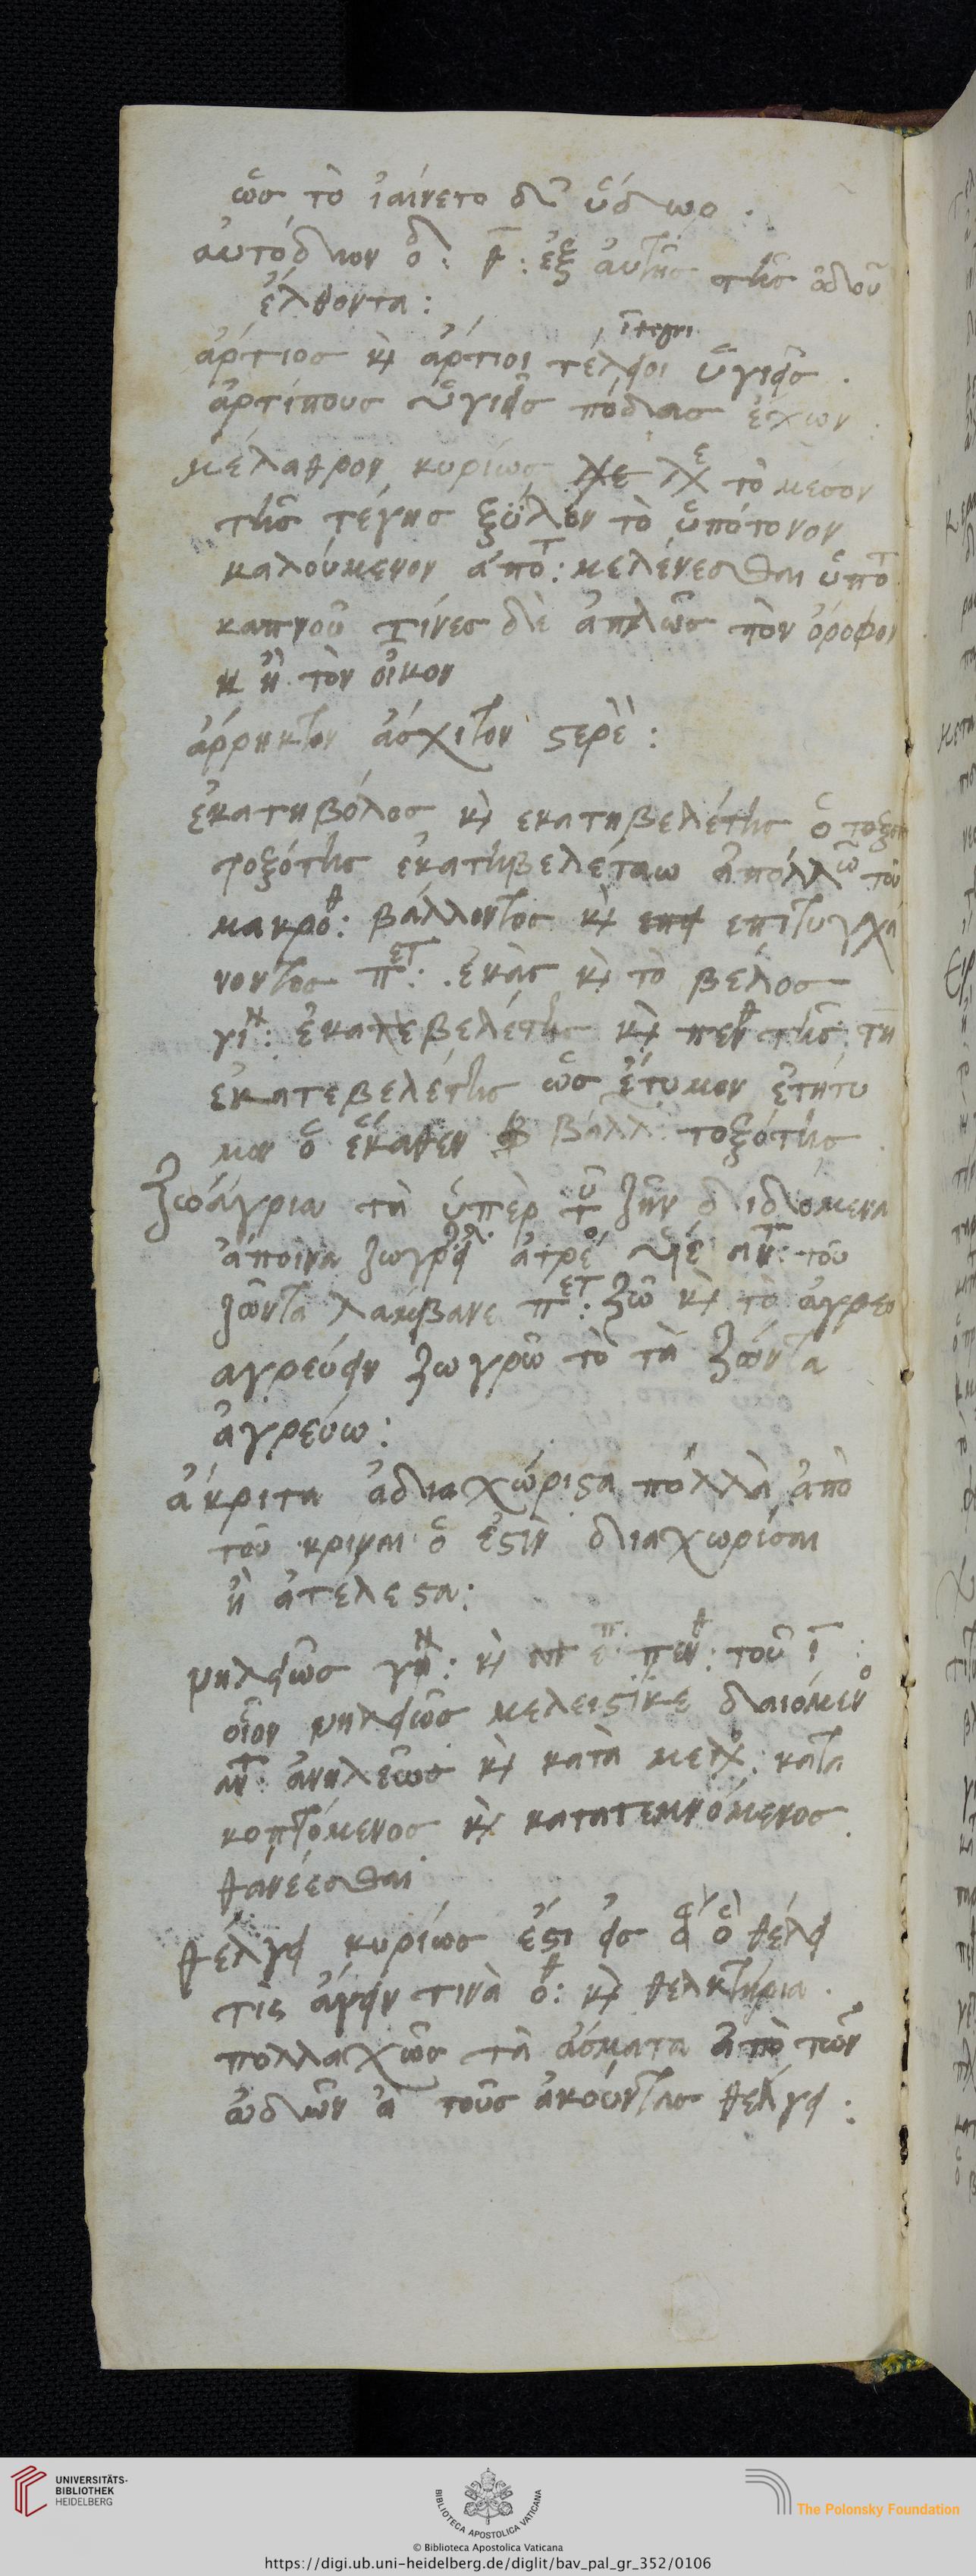 ὡς τὸ ἰαίνετο δ' ὕδωρ.
αὐτόδιον ὁδ: ἤ: ἐξ αὐτῆς τῆς ὁδοῦ
ἐλθοντα:
integri
ἄρτιος κ ἄρτιοι τέλειοι ὑγιεῖς.
ἀρτίπους ὑγιεῖς πόδας ἔχων:
μέλαθρον κυρίως λε τὸ μέσον
τῆς τέγης ξύλον τὸ ὑπότονον
καλούμενον ἀπὸ τ: μελένεσθαι ὑπὸ τ
καπνοῦ τινὲς δὲ ἁπλῶς τὸν ὄροφον
κ ἢ τὸν οἶκον
ἄρρηκτον ἄσχιτον στερε:
ἑκατηβόλος κ εκατηβελέτης ὁ τοξο
τοξότης ἑκατηβελέταω ἀπόλλω τοῦ
μακροθ: βάλλοντος κ επιτυγχά
νοντος π ετ: ἑκὰς κ τὸ βέλος
γιν: ἑκατεβελέτης κ πενθ τῆς: τη
ἑκατεβελέτης ὡς ἔτυμον ἐτήτυ
μον ὁ ἕκαθεν βάλλ τοξότης
ζωάγρια τὰ ὑπὲρ τοῦ ζῆν διδόμενα
ἄποινα ζωγρει ἀτρέο υἱέ αντ: τοῦ
ζῶντα λάμβανε π ετ: ζῶ κ τὸ ἀγρεύ
αγρεύειν ζωγρῶ τὸ τὰ ζῶντα
ἀγρεύω:
ἄκριτα ἀδιαχώριστα πολλὰ ἀπὸ
τοῦ κρίναι ὅ ἐστιν διαχωρίσαι
ἢ ἀτέλεστα:
νηλειῶς γην: κ επ: πενθ: τοῦ ι:
οἷον νηλειῶς μελειστὶ κε δαιόμενο
αντ: ἀνηλεῶς κ κατὰ μελ: κατα
κοπτόμενος κ κατατεμνόμενος.
θανέεσθαι
θέλγει κυρίως ἐστι εἰς ὃ θέλει
τὶς ἄγειν τινὰ ὁθ: κ θελκτήρια.
πολλαχῶς τὰ ᾄσματα ἀπὸ τῶν
ᾠδῶν ἃ τοὺς ἀκούντας θέλγει:
UNIVERSITÄTS-
BIBLIOTHEK
HEIDELBERG
BIBLIOTECA APOSTOLICA VATICANA
The Polonsky Foundation
© Biblioteca Apostolica Vaticana
https://digi.ub.uni-heidelberg.de/diglit/bav_pal_gr_352/0106